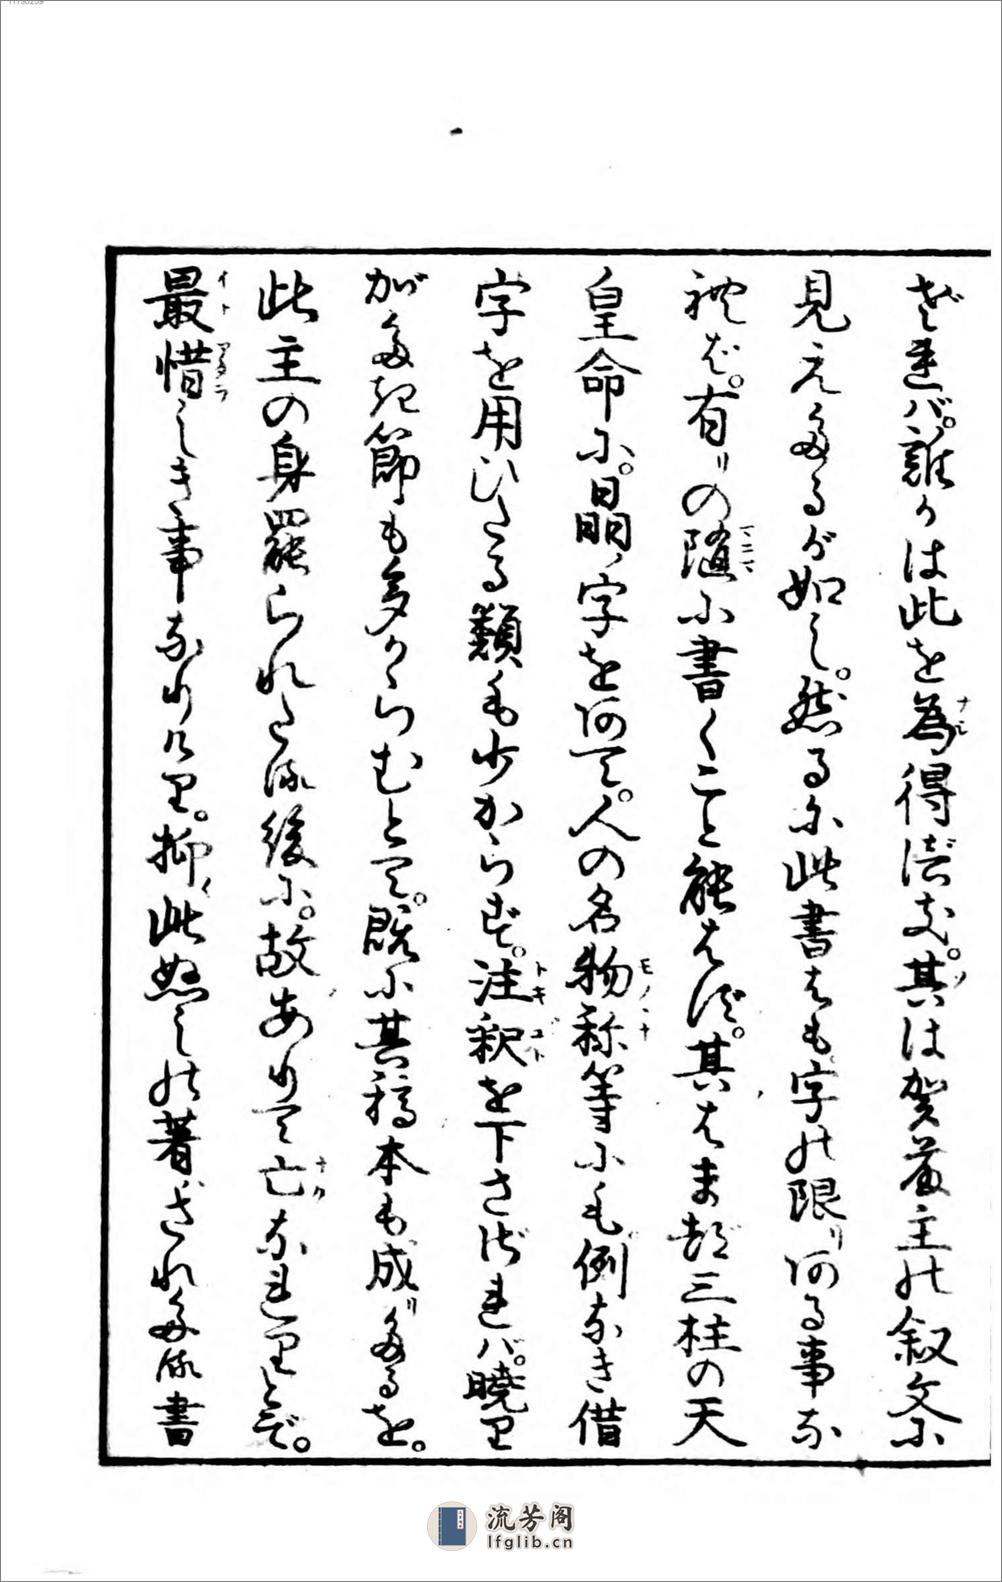 ざればゝ誰かは此を為得べき。其は賀茂主の叙文に
見えたるが如し。然るに此書はも字の限ある事な
れば。有の随に書くこと能はず。其はまづ三柱の天
皇命に。晶字をあて。人の名物称等にも例なき借
字を用ひたる類も少からず。注釈を下さざれば。暁り
がたき節も多からむとて。既に其稿本も成たるを。
此主の身罷られたる後に。故ありて亡なれりとぞ。
最惜しき事なりけり。抑此ぬしの著されたる書
流芳阁
lfglib.cn